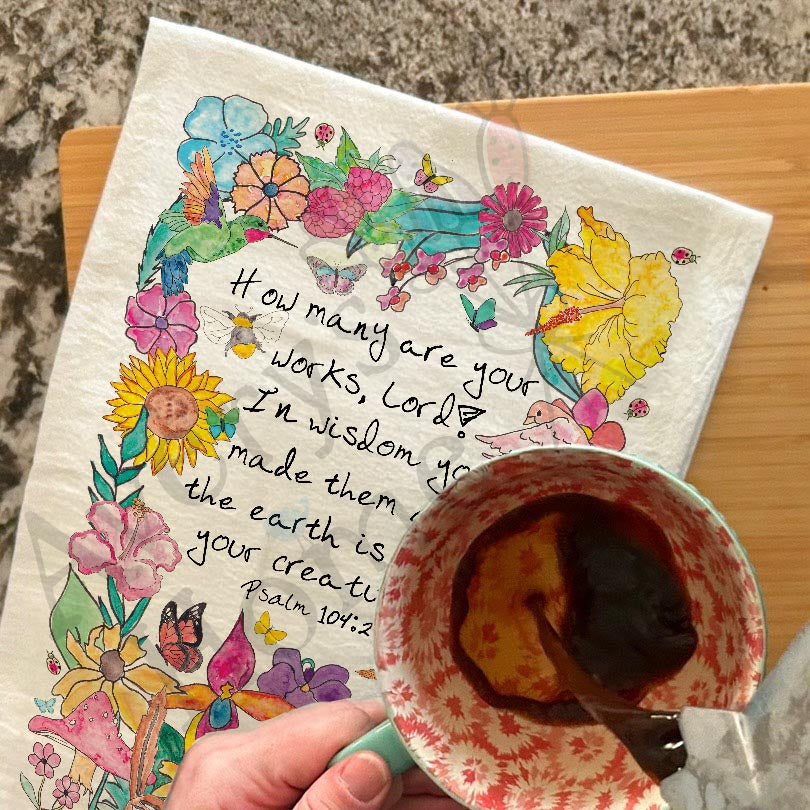 How many are your
works, Lord!
In wisdom yo
made them
the earth is
your creatu
Psalm 104:2